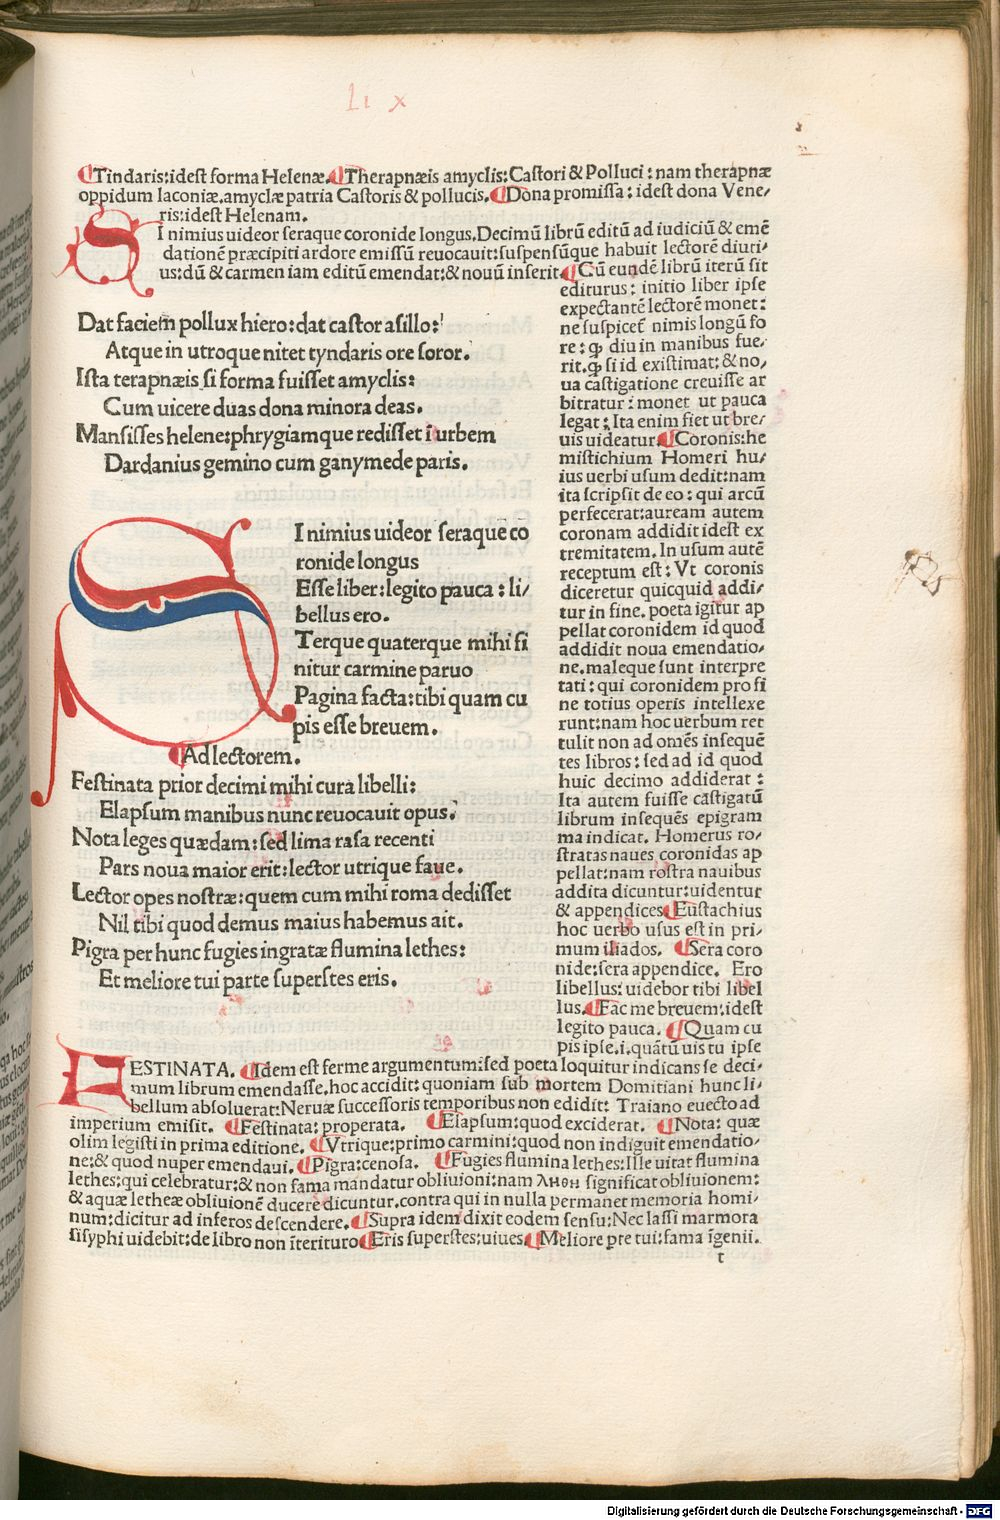 Li x
¶Tindaris:idest forma Helenæ.¶Therapnæis amyclis:Castori & Polluci:nam therapnæ
oppidum laconiæ.amyclæ patria Castoris & pollucis.¶Dona promissa:idest dona Vene/
ris:idest Helenam.
SI nimius uideor seraque coronide longus.Decimũ librũ editũ ad iudiciũ & emẽ
dationẽ præcipiti ardore emissũ reuocauit:suspensũque habuit lectorẽ diuti/
us:dũ & carmen iam editũ emendat:& nouũ inserit.¶Cũ eundẽ librũ iterũ sit
editurus: initio liber ipse
expectantẽ lectorẽ monet:
ne suspicet̃ nimis longũ fo
re: ꝙ diu in manibus fue/
rit.ꝙ si id existimat: & no/
ua castigatione creuisse ar
bitratur: monet ut pauca
legat: Ita enim fiet ut bre/
uis uideatur.¶Coronis:he
mistichium Homeri hu/
ius uerbi usum dedit:nam
ita scripsit de eo: qui arcũ
perfecerat:auream autem
coronam addidit idest ex
tremitatem. In usum autẽ
receptum est: Vt coronis
diceretur quicquid addi/
tur in fine. poeta igitur ap
pellat coronidem id quod
addidit noua emendatio/
ne.maleque sunt interpre
tati: qui coronidem pro fi
ne totius operis intellexe
runt:nam hoc uerbum ret
tulit non ad omẽs insequẽ
tes libros: sed ad id quod
huic decimo addiderat:
Ita autem fuisse castigatũ
librum insequẽs epigram
ma indicat. Homerus ro/
stratas naues coronidas ap
pellat:nam rostra nauibus
addita dicuntur:uidentur
& appendices.¶Eustachius
hoc uerbo usus est in pri/
mum iliados. ¶Sera coro
nide:sera appendice. Ero
libellus: uidebor tibi libel
lus.¶Fac me breuem:idest
legito pauca. ¶Quam cu
pis ipse.i.quãtũ uis tu ipse
Dat faciem pollux hiero:dat castor asillo:
Atque in utroque nitet tyndaris ore soror.
Ista terapnæis si forma fuisset amyclis:
Cum uicere duas dona minora deas.
Mansisses helene:phrygiamque redisset ĩ urbem
Dardanius gemino cum ganymede paris.
SI nimius uideor seraque co
ronide longus
Esse liber:legito pauca: li/
bellus ero.
Terque quaterque mihi fi
nitur carmine paruo
Pagina facta:tibi quam cu
pis esse breuem.
¶Ad lectorem.
Festinata prior decimi mihi cura libelli:
Elapsum manibus nunc reuocauit opus.
Nota leges quædam:sed lima rasa recenti
Pars noua maior erit:lector utrique faue.
Lector opes nostræ:quem cum mihi roma dedisset
Nil tibi quod demus maius habemus ait.
Pigra per hunc fugies ingratæ flumina lethes:
Et meliore tui parte superstes eris.
FESTINATA. ¶Idem est ferme argumentum:sed poeta loquitur indicans se deci/
mum librum emendasse.hoc accidit: quoniam sub mortem Domitiani hunc li/
bellum absoluerat:Neruæ successoris temporibus non edidit: Traiano euecto ad
imperium emisit. ¶Festinata: properata. ¶Elapsum:quod exciderat. ¶Nota: quæ
olim legisti in prima editione. ¶Vtrique:primo carmini:quod non indiguit emendatio/
ne:& quod nuper emendaui.¶Pigra:cenosa. ¶Fugies flumina lethes:Ille uitat flumina
lethes:qui celebratur:& non fama mandatur obliuioni:nam ληθη significat obliuionem:
& aquæ letheæ obliuionẽ ducere dicuntur.contra qui in nulla permanet memoria homi/
num:dicitur ad inferos descendere.¶Supra idem dixit eodem sensu:Nec lassi marmora
sisyphi uidebit:de libro non ĩterituro¶Eris superstes:uiues.¶Meliore pte tui:fama ĩgenii.
t
Digitalisierung gefördert durch die Deutsche Forschungsgemeinschaft - DFG